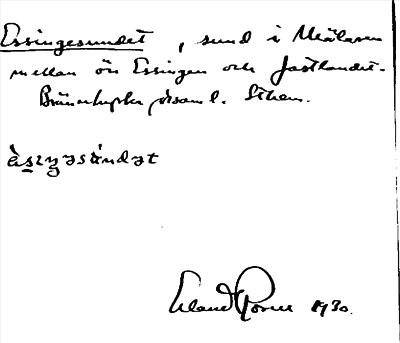 Essingesundet, sund i Mälaren
mellan ön Essingen och fastlandet.
Brännkyrka församl. Sthlm.
èsıŋəsúndət
Erland Rosell 1930.